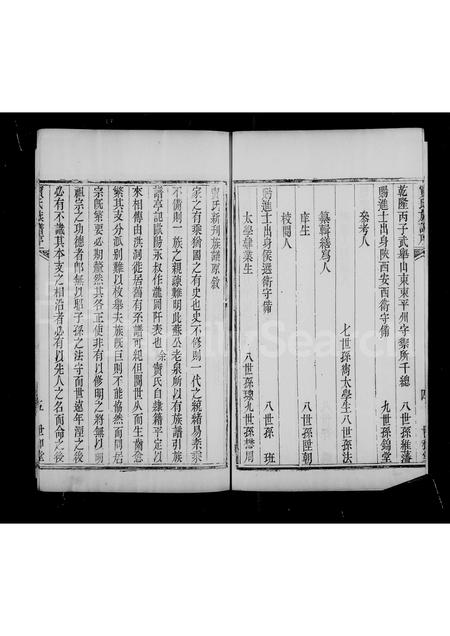 乾隆丙子武舉山東東平州守禦所千總 八世孫維藩
賜進士出身陝西安西衛守備 九世孫錦堂
參考人
七世孫 太學生八世孫法
纂輯繕寫人
庠生 八世孫陛朝
校閱人
賜進士出身候選衛守備 八世孫班
太學肄業生 八世孫 九世孫 周
竇氏新刋族譜原敘
家之有乘猶國之有史也史不修則一代之統緒易紊乘
不備則一族之親疎難明此蘇公老泉所以有族譜引族
譜亭記歐陽永叔作瀧岡阡表也余竇氏自隸籍平定以
來相傳由洪洞徙居舊有系譜可紀但閱世 而生齒愈
繁其支分派別難以枚舉夫族旣巨則不能恊然而同居
宗旣繁要必期釐然其各正使非有以修明之將無以明
祖宗之功德者卽無以昭子孫之法守而世遠年湮之後
必有不識其本支之相沿者必有以先人之名而命之後
竇氏族譜序
五 世